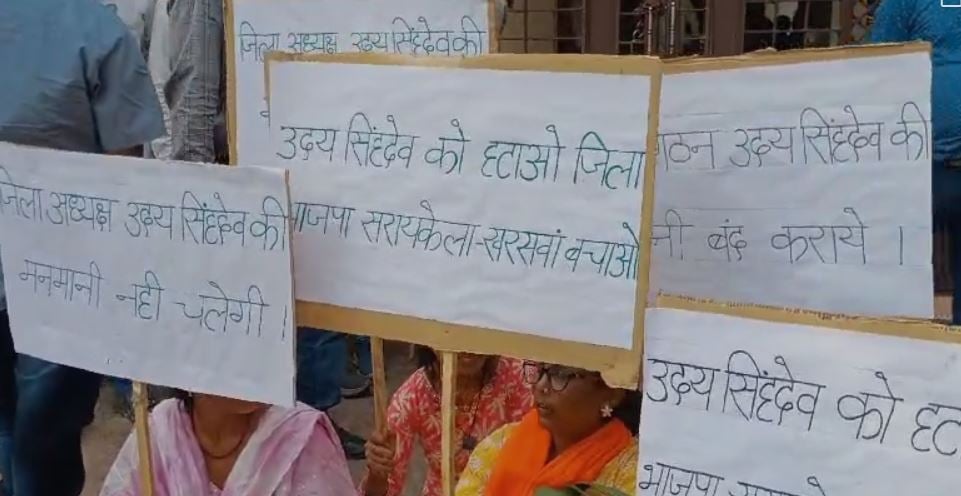 जिला अध्यक्ष उदय सिंहदेव की
उदय सिंहदेव को हटाओ जिला
भाजपा सरायकेला-खरसवां बचाओ
जिला अध्यक्ष उदय सिंहदेव की
मनमानी नही चलेगी ।
उदय सिंहदेव की
बंद कराये ।
उदय सिंहदेव को
भाजपा